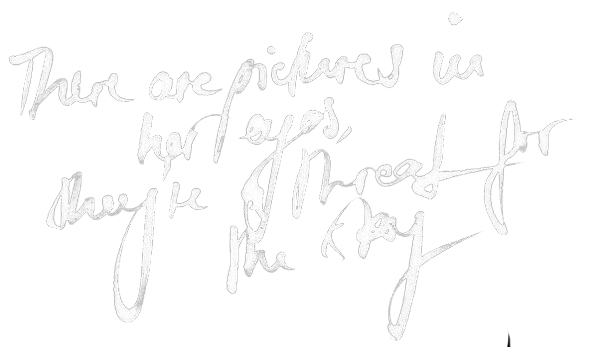 There are pictures in
her eyes,
they're threat for
the